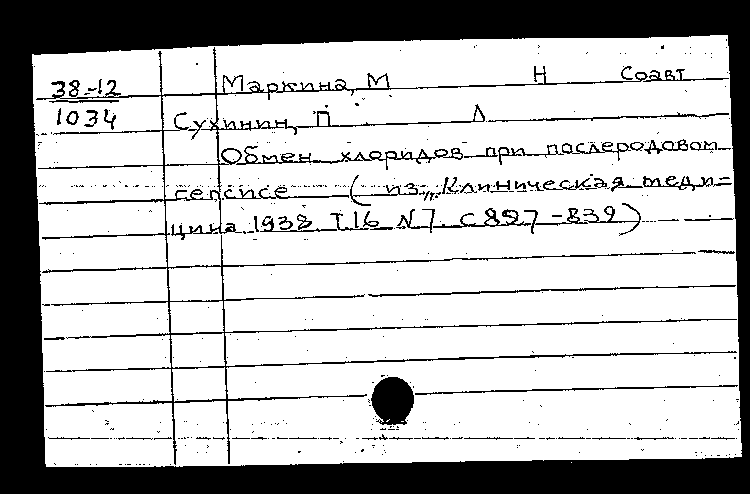 38-12 Маркина, М Н Соавт
1034 Сухинин, П Л
Обмен хлоридов при послеродовом
сепсисе (из „Клиническая меди=
цина 1938 Т.16 N7. С 827-839)